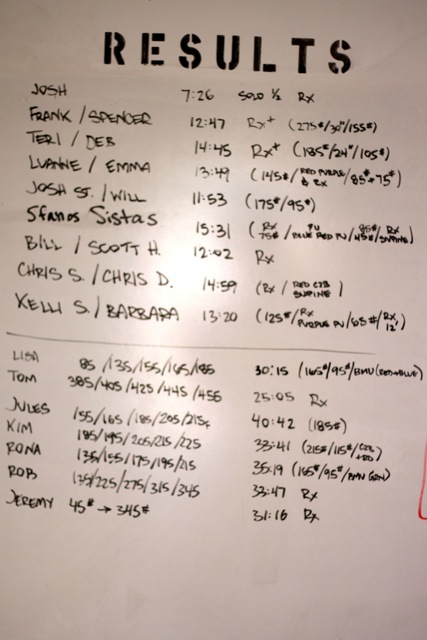 RESULTS
JOSH 7:26 SOLO 1/2 Rx
FRANK / SPENCER 12:47 Rx+ (275#/30"/155#)
TERI / DEB 14:45 Rx+ (185#/24"/105#)
LUANNE / EMMA 13:49 (145#/RED PURPLE & RX/85#+75#)
JOSH ST. / WILL 11:53 (175#/95#)
Sfanos Sistas 15:31
BILL / SCOTT H. 12:02 Rx
CHRIS S. / CHRIS D. 14:59 (Rx / RED
KELLI S. / BARBARA 13:20 (125#/Rx PURPLE PU/65#/Rx 12")
LISA 85/135/155/165/185 30:15 (165#/95#/BMU (RED+BLUE)
TOM 385/405/425/445/455 25:05 Rx
JULES 155/165/185/205/215 40:42 (185#)
KIM 185/195/205/215/225 33:41 (215#/115#/
RONA 135/155/175/195/215 35:19 (165#/95#/
ROB 135/225/275/315/345 33:47 Rx
JEREMY 45# → 345# 31:16 Rx